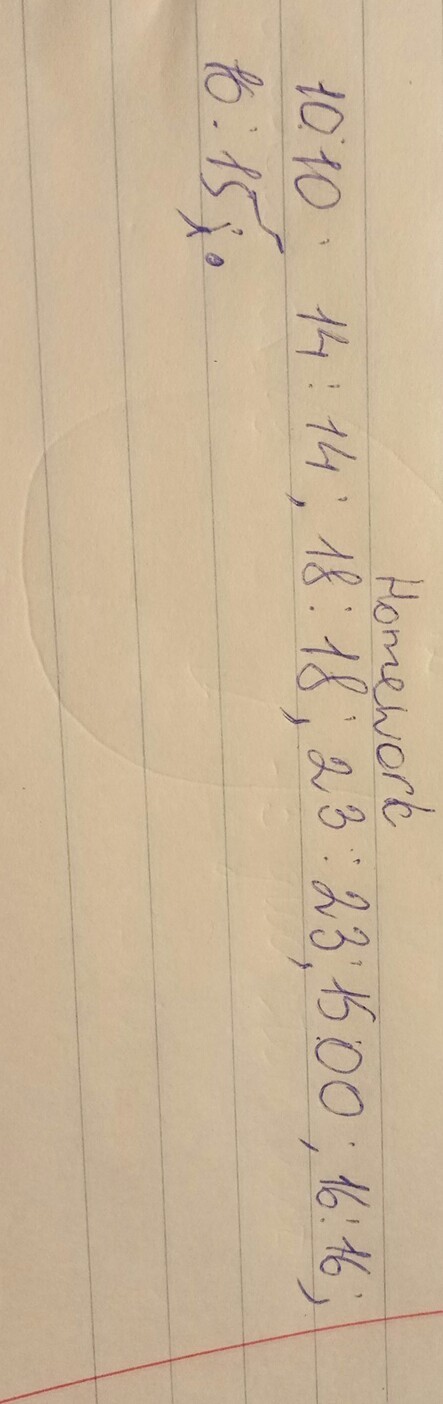 Homework
10:10; 14:14; 18:18; 23:23; 15:00; 16:16;
16:15;